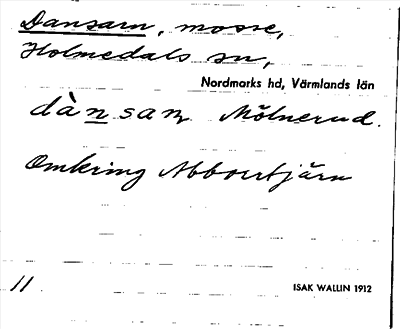 Dansarn, mosse,
Holmedals sn,
Nordmarks hd, Värmlands län
dànsaɳ Mölnerud.
Omkring Abborrtjärn
11.
ISAK WALLIN 1912